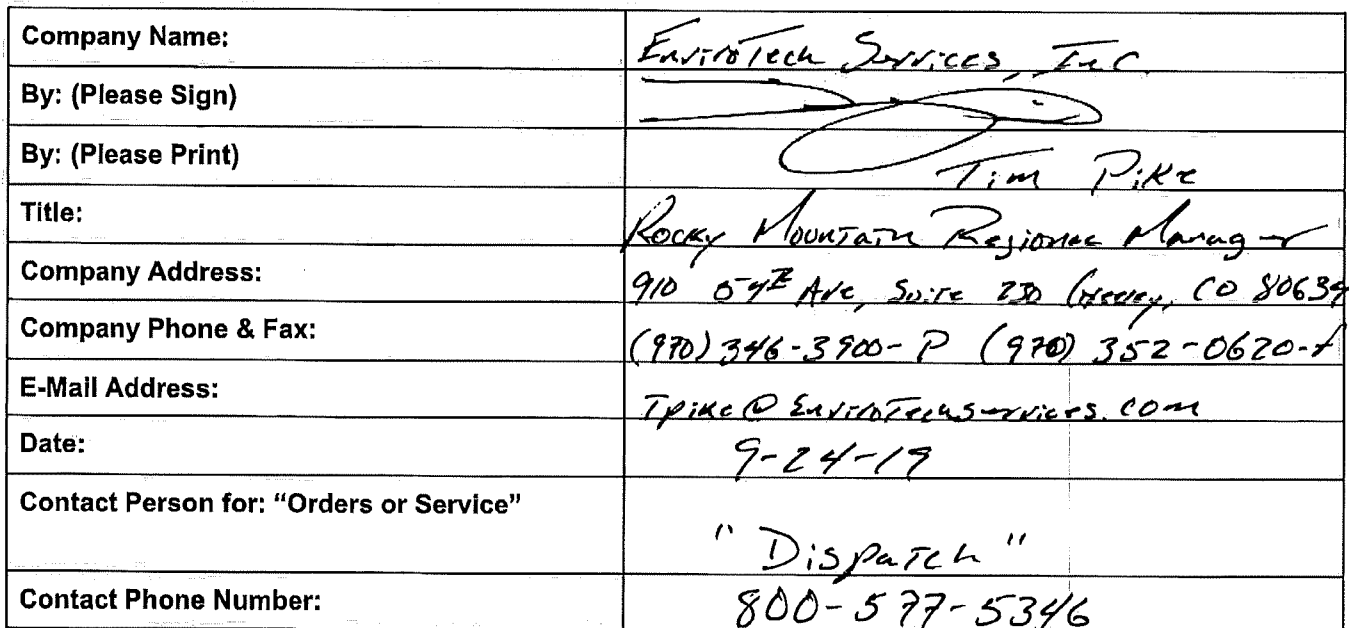 Company Name: EnviroTech Services, Inc.
By: (Please Sign)
By: (Please Print) Tim Pike
Title: Rocky Mountain Regional Manager
Company Address: 910 54th Ave, Suite 230 Greeley, CO 80634
Company Phone & Fax: (970) 346-3900-P (970) 352-0620-f
E-Mail Address: Tpike@EnviroTechservices.com
Date: 9-24-19
Contact Person for: “Orders or Service” "Dispatch"
Contact Phone Number: 800-577-5346